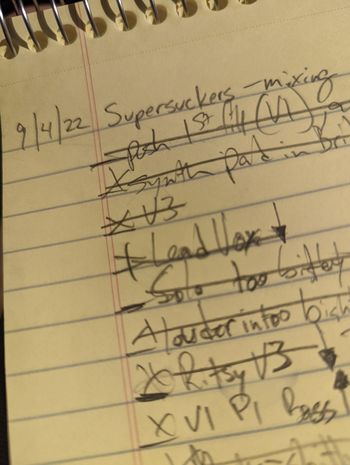 9/4/22 Supersuckers - mixing
- push 1st fill (V1)
X synth pad in
X V3
+ Lead Vox ↓
- Solo too
A louder in too
X Ritsy V3
X V1 P1 Bass